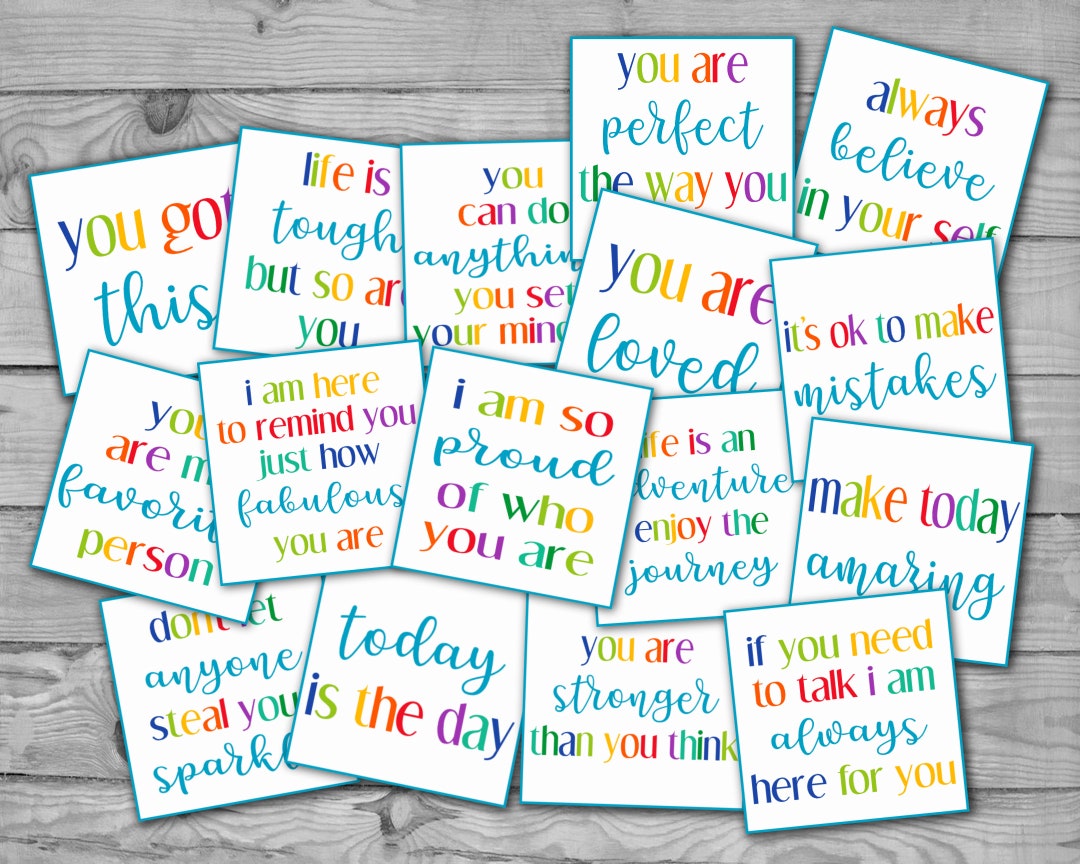 you are
perfect
the way you
always
believe
in your self
life is
tough
but so are
you
you
can do
anything
you set
your mind
you got
this
you are
loved
it's ok to make
mistakes
you
are my
favorite
person
i am here
to remind you
just how
fabulous
you are
i am so
proud
of who
you are
life is an
adventure
enjoy the
journey
make today
amazing
don't let
anyone
steal your
sparkle
today
is the day
you are
stronger
than you think
if you need
to talk i am
always
here for you